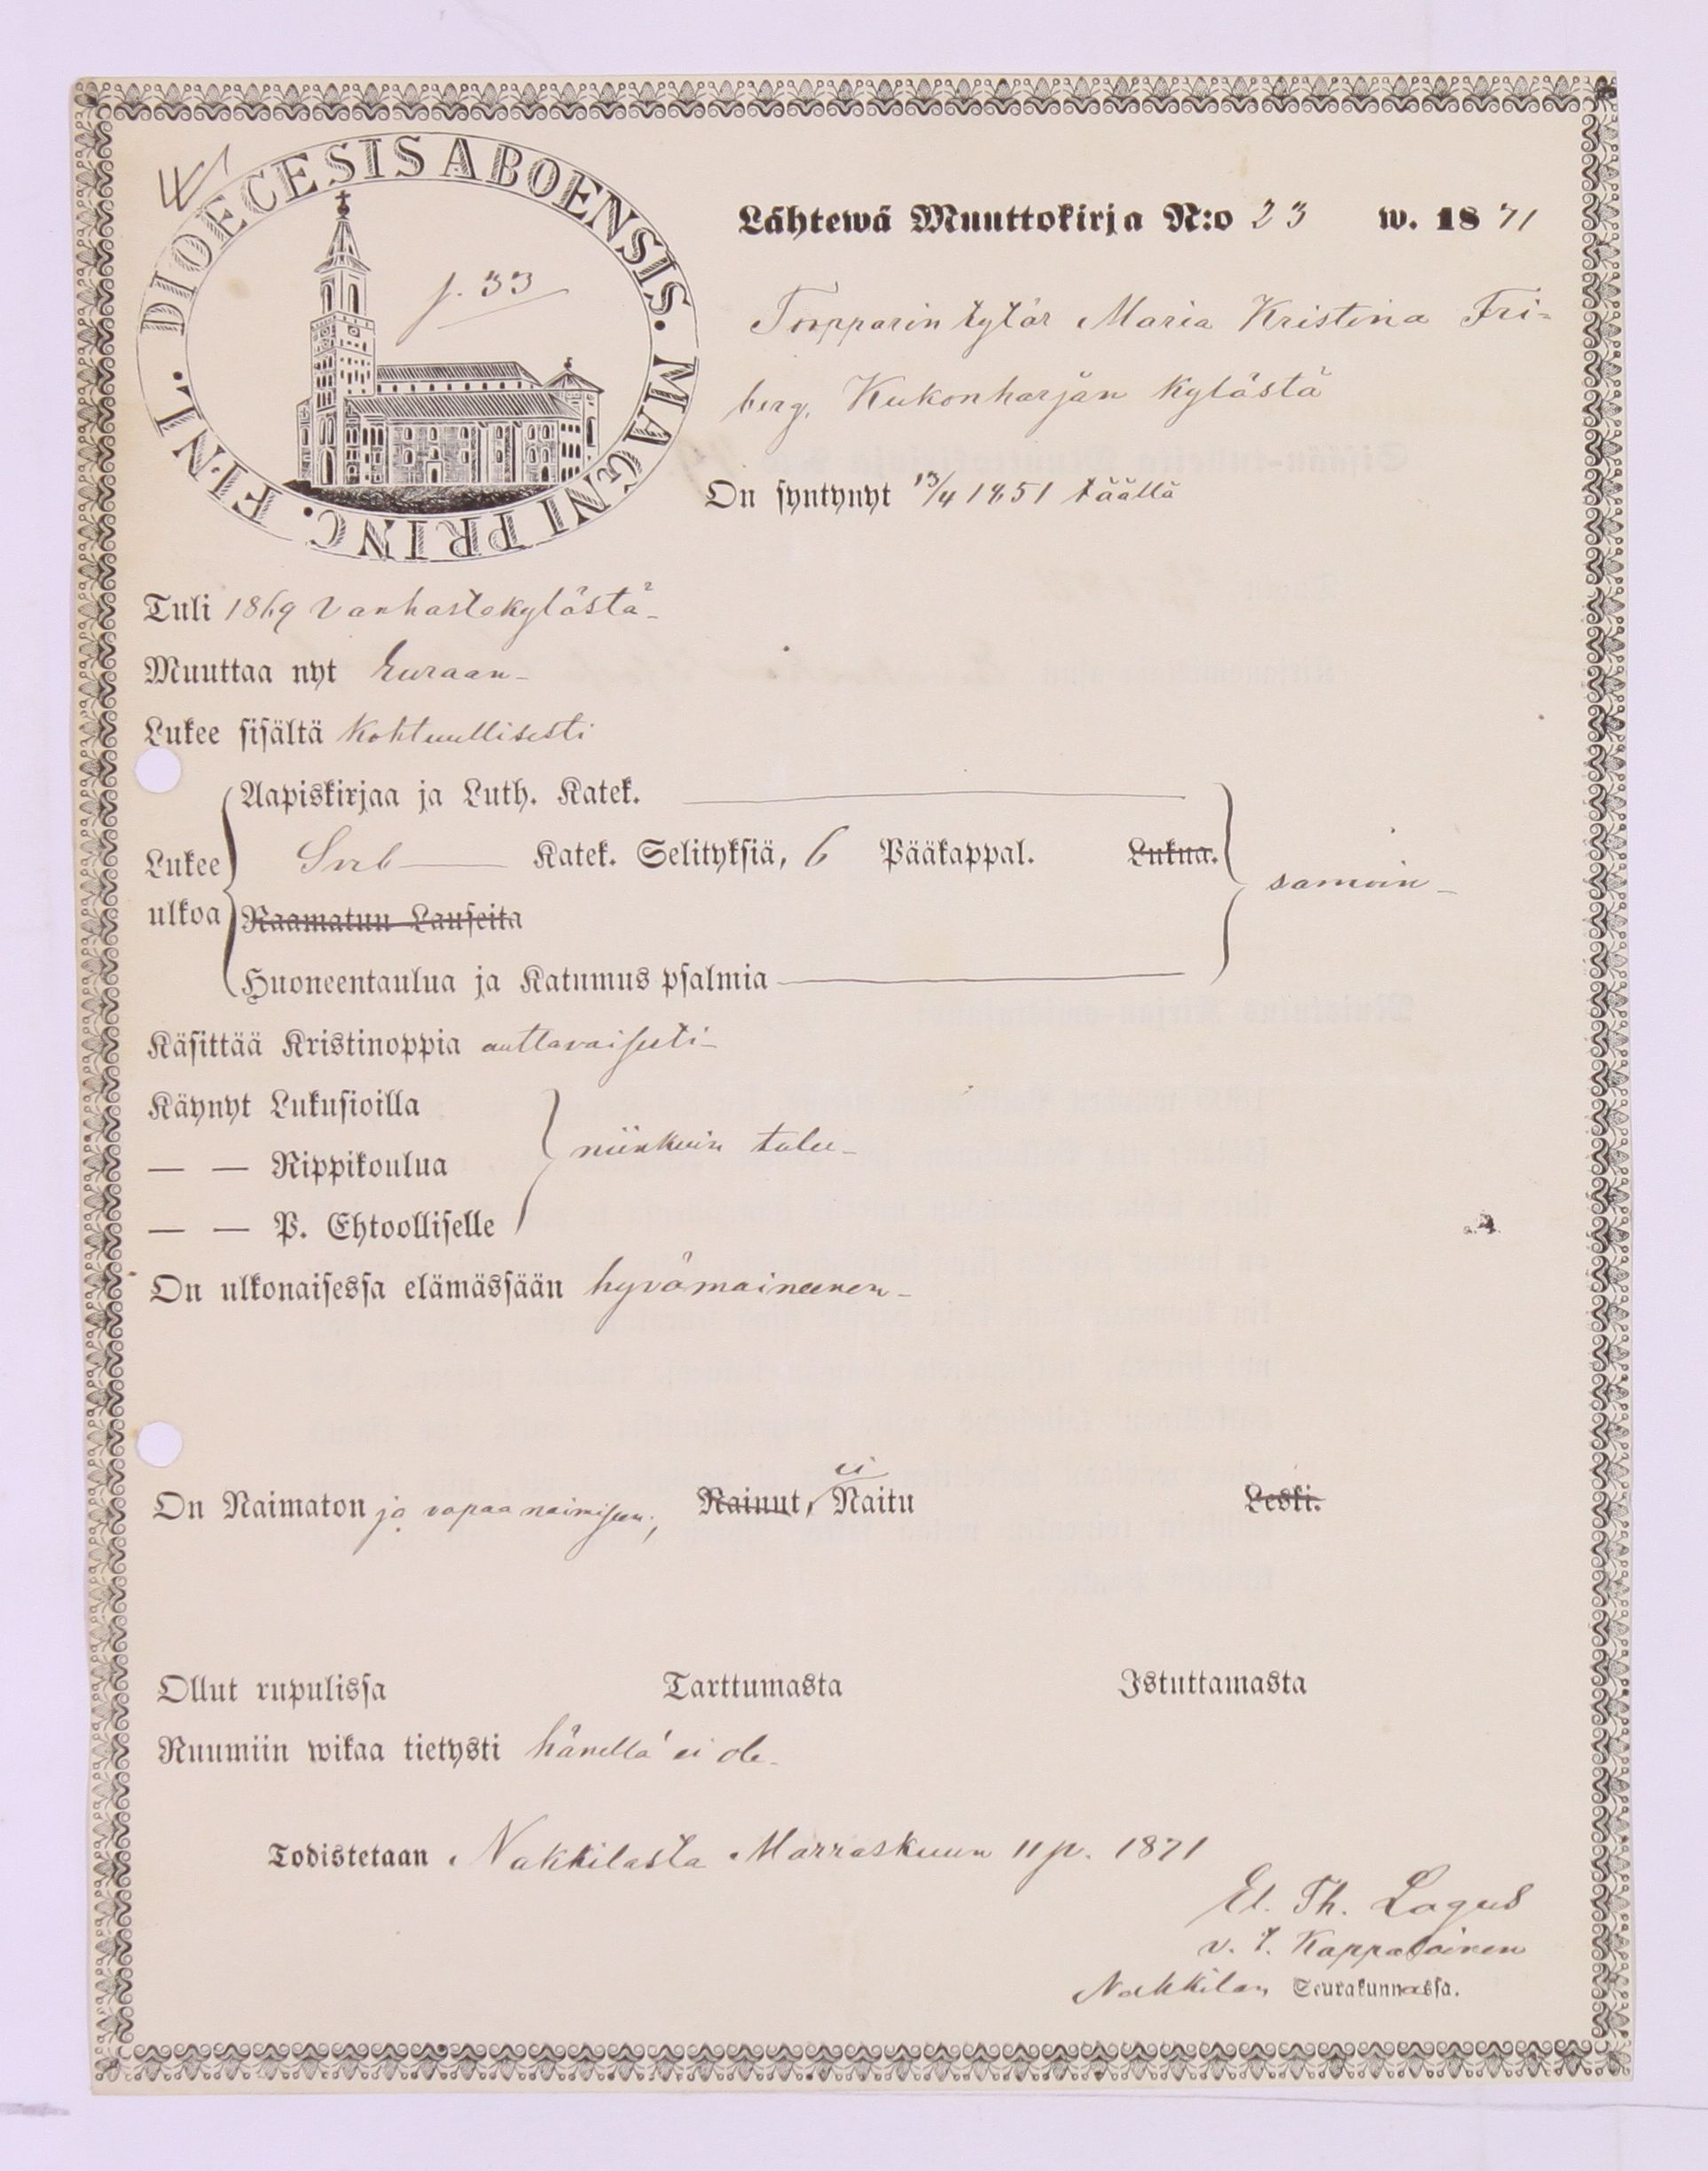 DIOECESIS ABOENSIS. MAGNI PRINC. FINL.
p. 33
Lähtewä Muuttokirja N:o 23 w. 1871
Torpparin tytär Maria Kristina Fri-
berg, Kukonharjan kylästä
On syntynyt 13/4 1851 täällä
Tuli 1869 Vanhastakylästä
Muuttaa nyt Euraan
Lukee sisältä kohtuullisesti
Aapiskirjaa ja Luth. Katek.
Lukee Sveb Katek. Selityksiä, 6 Pääkappal. Lukua. samoin
ulkoa Raamatun Lauseita
Huoneentaulua ja Katumus psalmia
Käsittää Kristinoppia auttavaisesti
Käynyt Lukusioilla
— — Rippikoulua niinkuin tulee
— — P. Ehtoolliselle
On ulkonaisessa elämässään hyvämaineenen
On Naimaton ja vapaa naimiseen; Nainut, ei Naitu Leski.
Ollut rupulissa Tarttumasta Istuttamasta
Ruumiin wikaa tietysti hänellä ei ole
Todistetaan Nakkilasta Marraskuun 11 p. 1871
El. Th. Lagus
v. t. Kappalainen
Nakkilan Seurakunnassa.